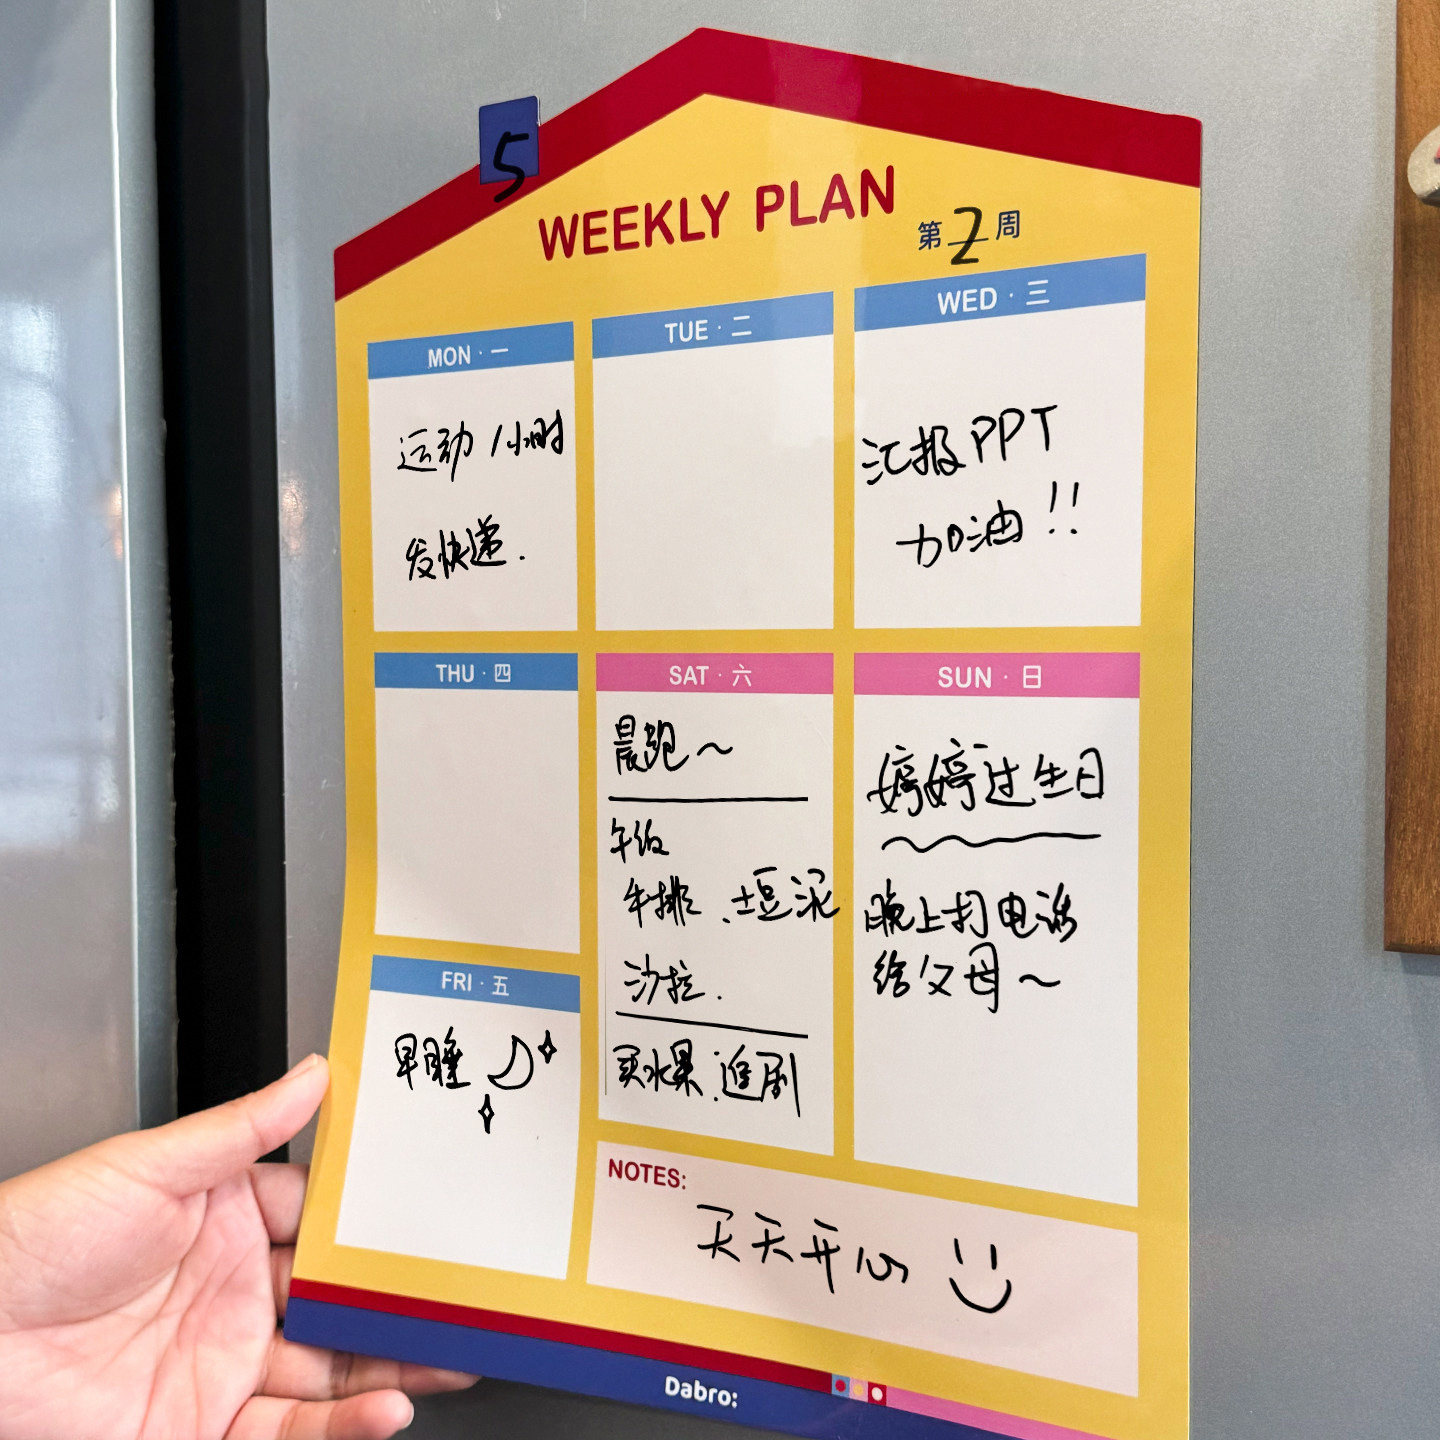 5
WEEKLY PLAN
第2周
MON · 一
运动 1小时
发快递.
TUE · 二
WED · 三
汇报PPT
加油!!
THU · 四
FRI · 五
早睡
SAT · 六
晨跑~
午饭
牛排.土豆泥
沙拉.
买水果.追剧
SUN · 日
婷婷过生日
晚上打电话
给父母~
NOTES:
天天开心
Dabro: